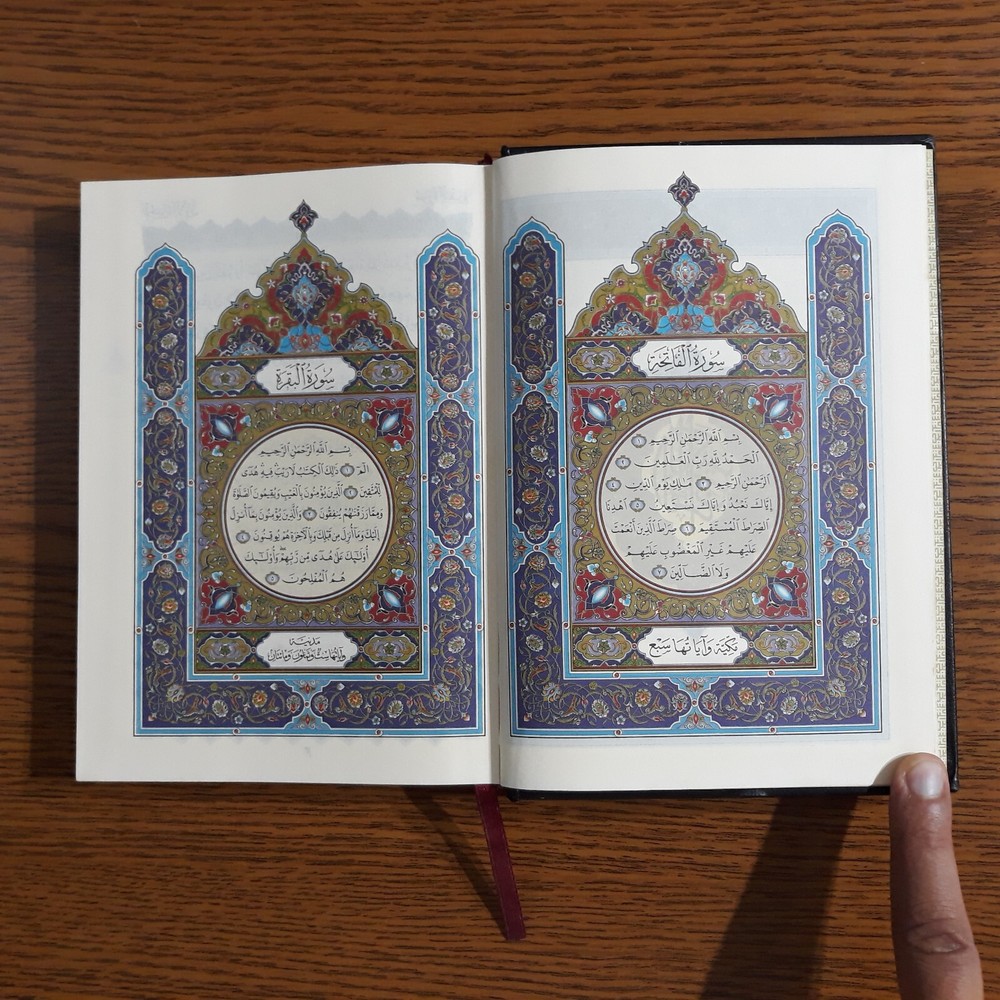 سُورَةُ ٱلْفَاتِحَةِ
بِسْمِ ٱللَّهِ ٱلرَّحْمَٰنِ ٱلرَّحِيمِ ١
ٱلْحَمْدُ لِلَّهِ رَبِّ ٱلْعَٰلَمِينَ ٢
ٱلرَّحْمَٰنِ ٱلرَّحِيمِ ٣ مَٰلِكِ يَوْمِ ٱلدِّينِ ٤
إِيَّاكَ نَعْبُدُ وَإِيَّاكَ نَسْتَعِينُ ٥ ٱهْدِنَا
ٱلصِّرَٰطَ ٱلْمُسْتَقِيمَ ٦ صِرَٰطَ ٱلَّذِينَ أَنْعَمْتَ
عَلَيْهِمْ غَيْرِ ٱلْمَغْضُوبِ عَلَيْهِمْ
وَلَا ٱلضَّآلِّينَ ٧
مَكِّيَّة وَآيَاتُهَا سَبْع
سُورَةُ ٱلْبَقَرَةِ
بِسْمِ ٱللَّهِ ٱلرَّحْمَٰنِ ٱلرَّحِيمِ
الٓمٓ ١ ذَٰلِكَ ٱلْكِتَٰبُ لَا رَيْبَ فِيهِ هُدًى
لِّلْمُتَّقِينَ ٢ ٱلَّذِينَ يُؤْمِنُونَ بِٱلْغَيْبِ وَيُقِيمُونَ ٱلصَّلَوٰةَ
وَمِمَّا رَزَقْنَٰهُمْ يُنفِقُونَ ٣ وَٱلَّذِينَ يُؤْمِنُونَ بِمَآ أُنزِلَ
إِلَيْكَ وَمَآ أُنزِلَ مِن قَبْلِكَ وَبِٱلْءَاخِرَةِ هُمْ يُوقِنُونَ ٤
أُو۟لَٰٓئِكَ عَلَىٰ هُدًى مِّن رَّبِّهِمْ وَأُو۟لَٰٓئِكَ
هُمُ ٱلْمُفْلِحُونَ ٥
مَدَنِيَّة
وَآيَاتُهَا سِتٌّ وَثَمَانُونَ وَمِائَتَان